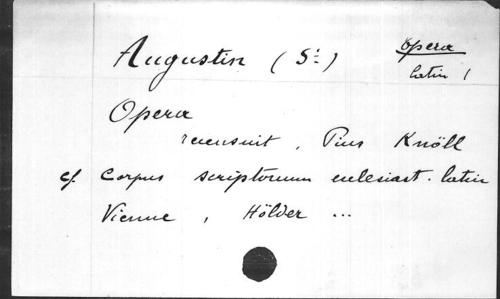 Augustin (St)
Opera
latin 1
Opera
recensuit, Pius Knöll
cf. Corpus scriptorum eclesiast. latin
Vienne, Hölder ...